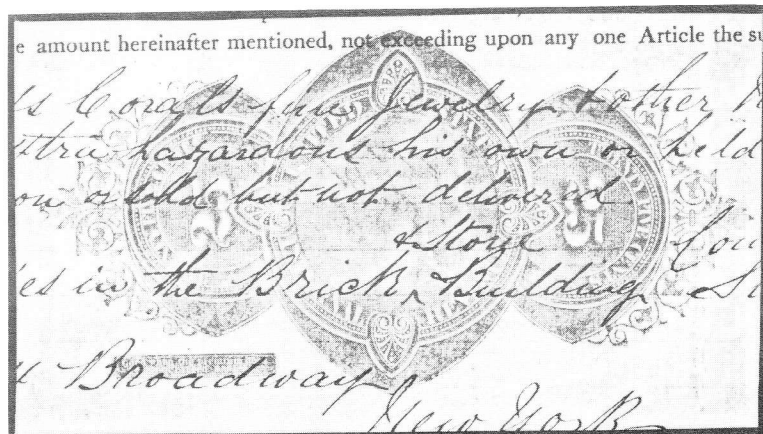 e amount hereinafter mentioned, not exceeding upon any one Article the su
Corals fine Jewelry & other
xtra hazardous his own or held
on or sold but not delivered
& Stone Cou
es in the Brick Building
Broadway
New York